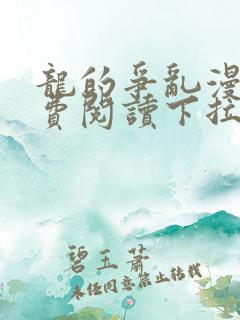 龍的爭亂漫
費閱讀下拉
碧玉蕭
未經同意禁止轉載